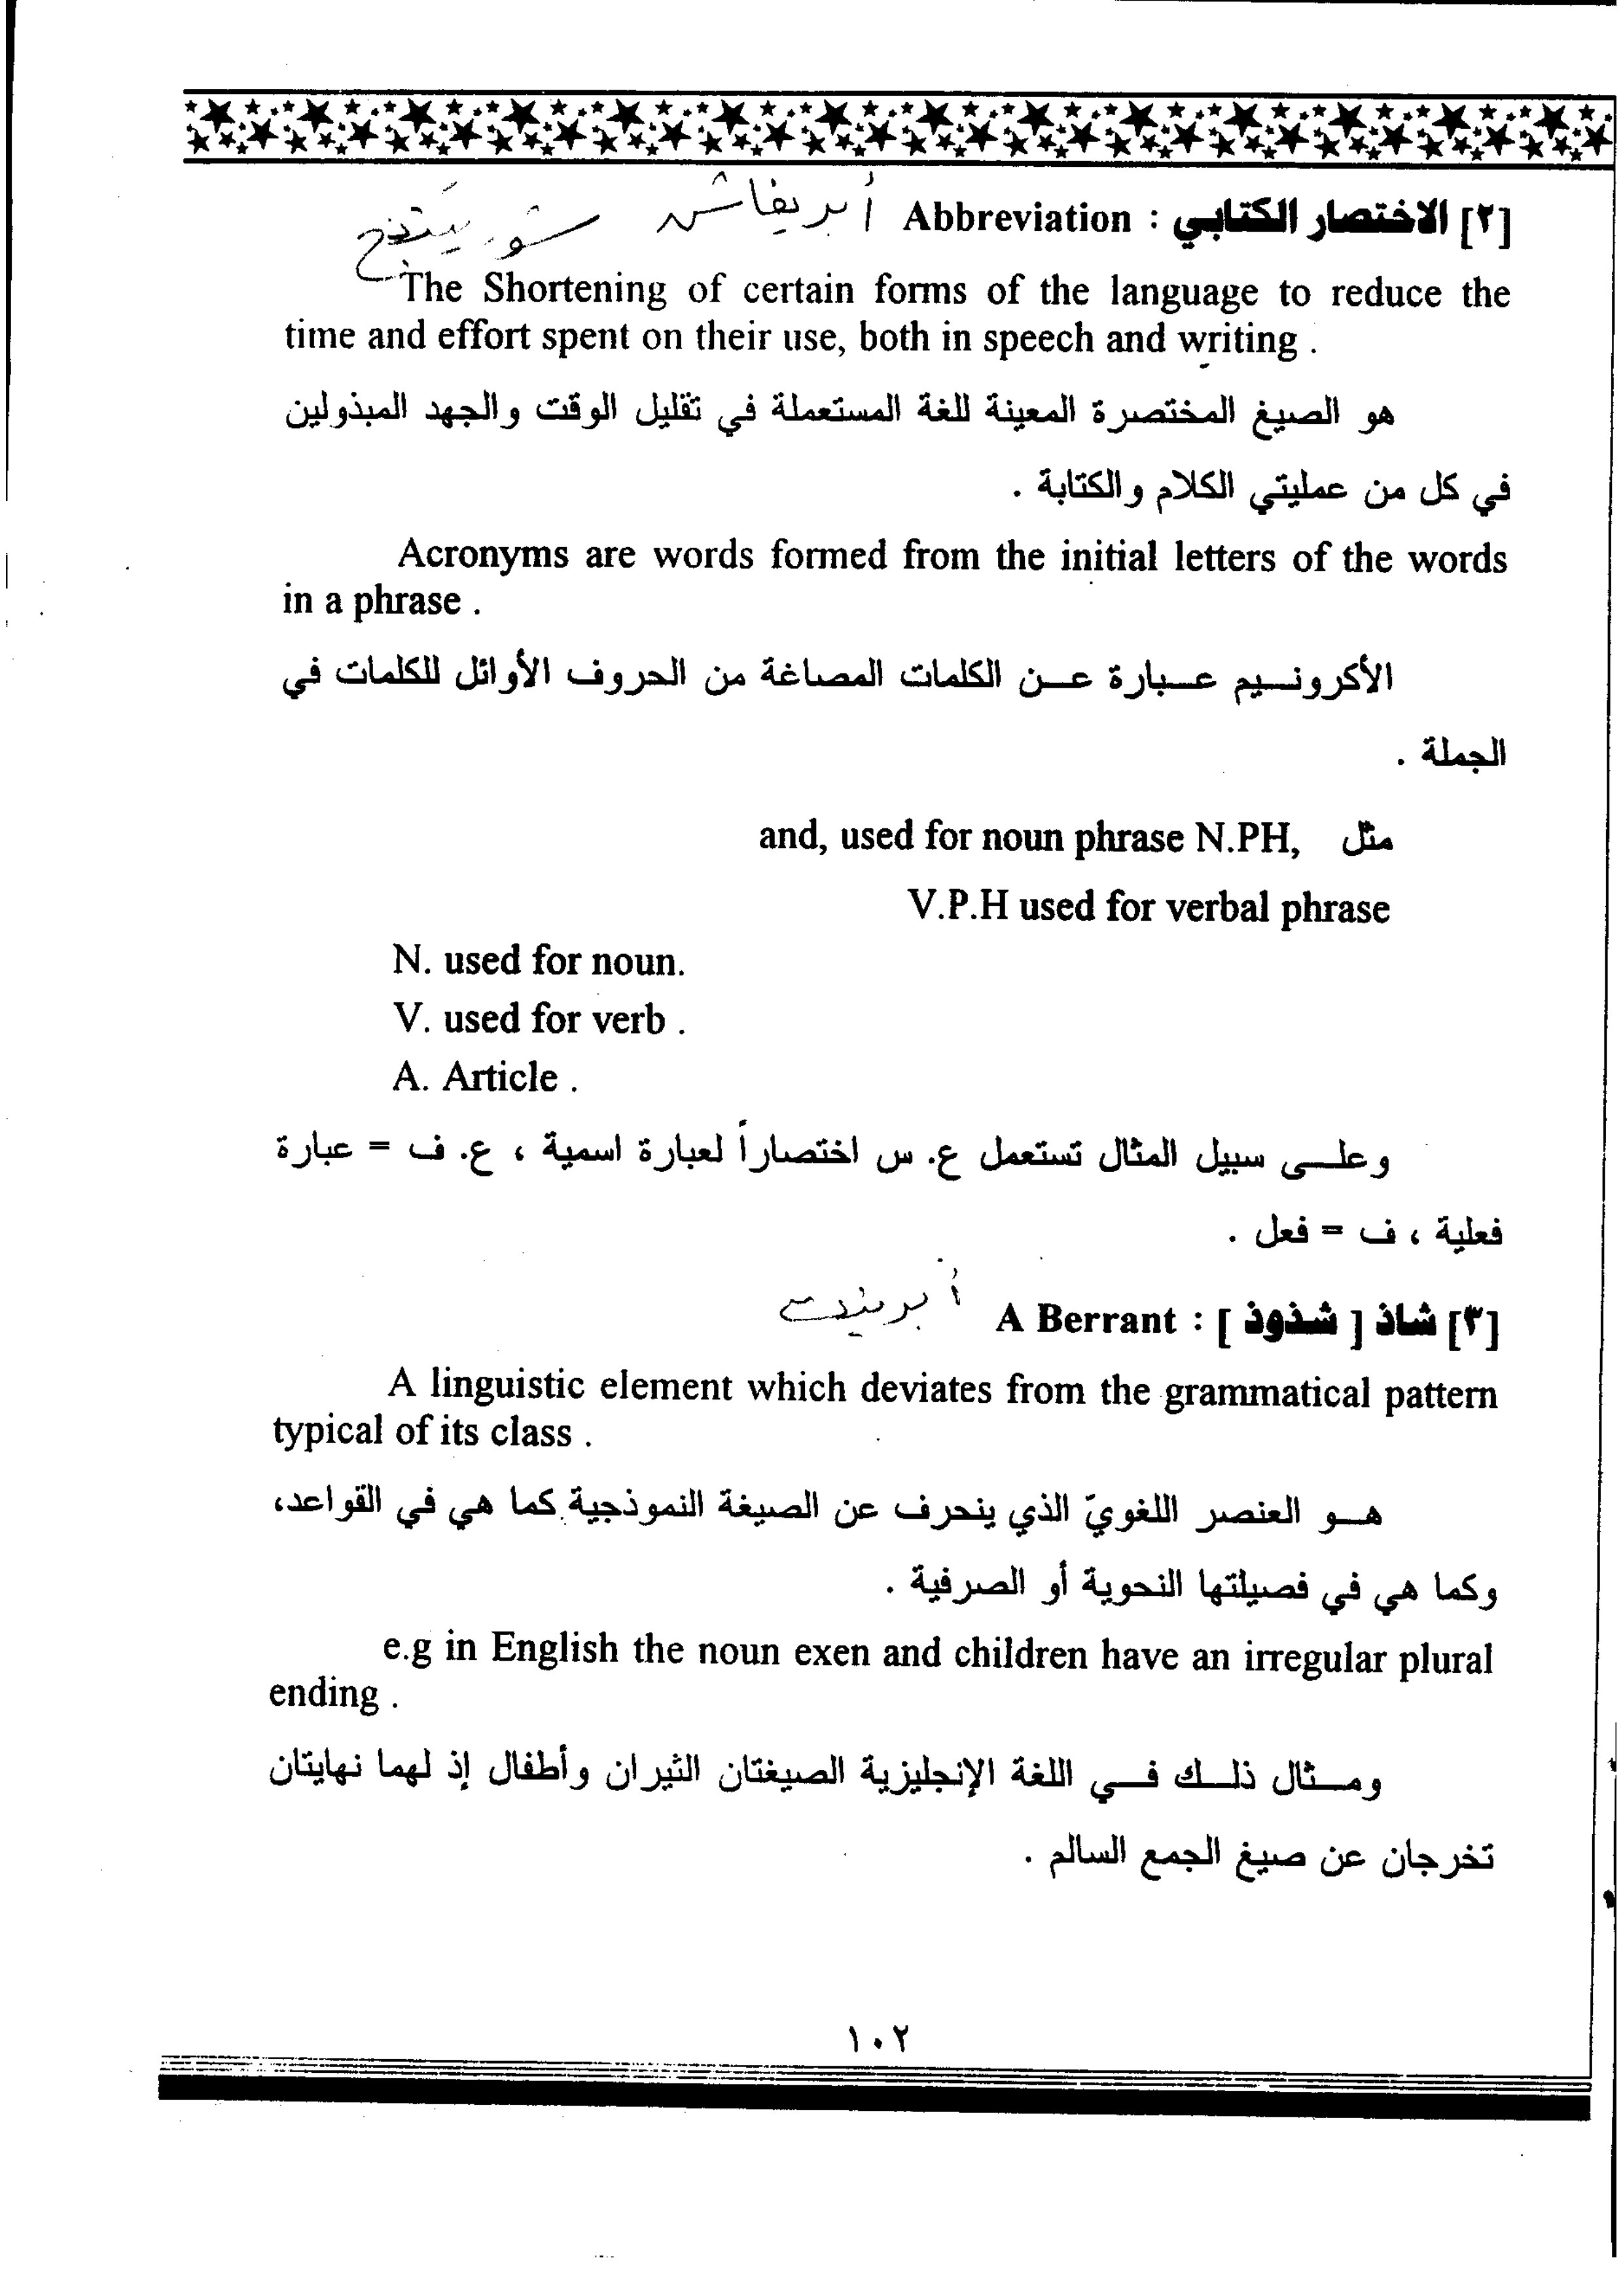 [٢] الاختصار الكتابي : Abbreviation أبريفاشن شورتننج
The Shortening of certain forms of the language to reduce the
time and effort spent on their use, both in speech and writing .
هو الصيغ المختصرة المعينة للغة المستعملة في تقليل الوقت والجهد المبذولين
في كل من عمليتي الكلام والكتابة .
Acronyms are words formed from the initial letters of the words
in a phrase .
الأكرونيم عبارة عن الكلمات المصاغة من الحروف الأوائل للكلمات في
الجملة .
مثل and, used for noun phrase N.PH,
V.P.H used for verbal phrase
N. used for noun.
V. used for verb .
A. Article .
وعلى سبيل المثال تستعمل ع. س اختصاراً لعبارة اسمية ، ع. ف = عبارة
فعلية ، ف = فعل .
[٣] شاذ [ شذوذ ] : A Berrant
A linguistic element which deviates from the grammatical pattern
typical of its class .
هو العنصر اللغويّ الذي ينحرف عن الصيغة النموذجية كما هي في القواعد،
وكما هي في فصيلتها النحوية أو الصرفية .
e.g in English the noun exen and children have an irregular plural
ending .
ومثال ذلك في اللغة الإنجليزية الصيغتان الثيران وأطفال إذ لهما نهايتان
تخرجان عن صيغ الجمع السالم .
١٠٢